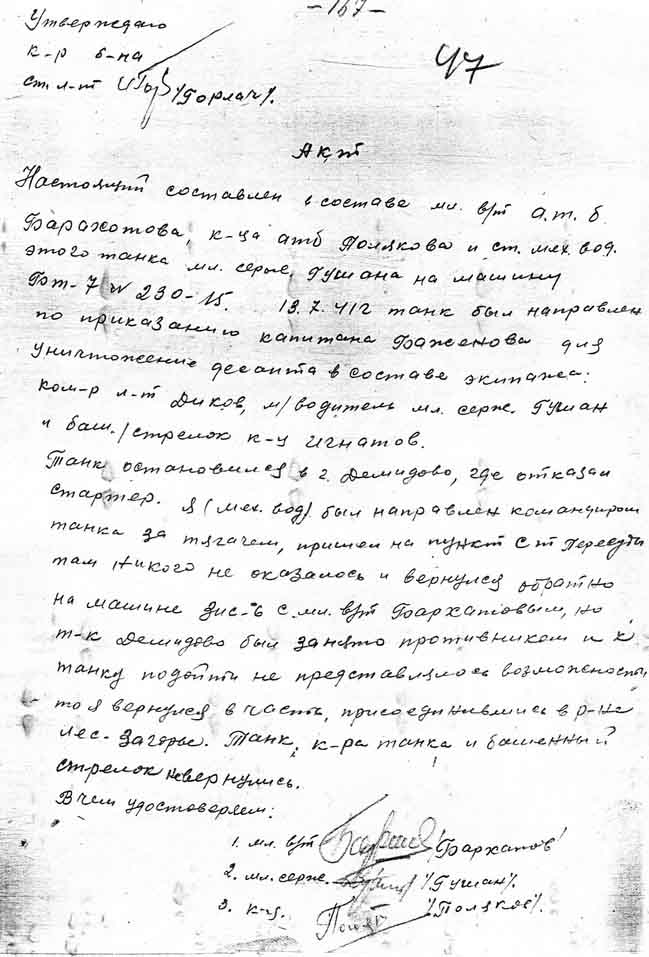 -167-
Утверждаю
к-р б-на
ст. л-т /Горлач/.
47
Акт
Настоящий составлен в состава мл. в/т а.т.б.
Барахотова, к-ца атб Полякова и ст. мех. вод.
этого танка мл. серже. Гушана на машину
Бт-7 № 230-15. 13.7.41г танк был направлен
по приказанию капитана Баженова для
уничтожение десанта в составе экипажа:
ком-р л-т Диков, м/водитель мл. серж. Гушан
и баш./стрелок к-ц Игнатов.
Танк остановился в г. Демидово, где отказал
стартер. Я (мех. вод) был направлен командиром
танка за тягачем, пришел на пункт Ст
там никого не оказалось и вернулся обратно
на машине Зис-5 с мл. в/т Бархатовым, но
т-к Демидово был занято противником и к
танку подойти не представлялось возможности
то я вернулся в часть, присоединившись в р-не
лес-Загорье. Танк, к-ра танка и башенный
стрелок невернулись.
В чем удостоверяем:
1. мл. в/т /Бархатов/
2. мл. серже. /Гушан/.
3. к-ц. /Поляков/.